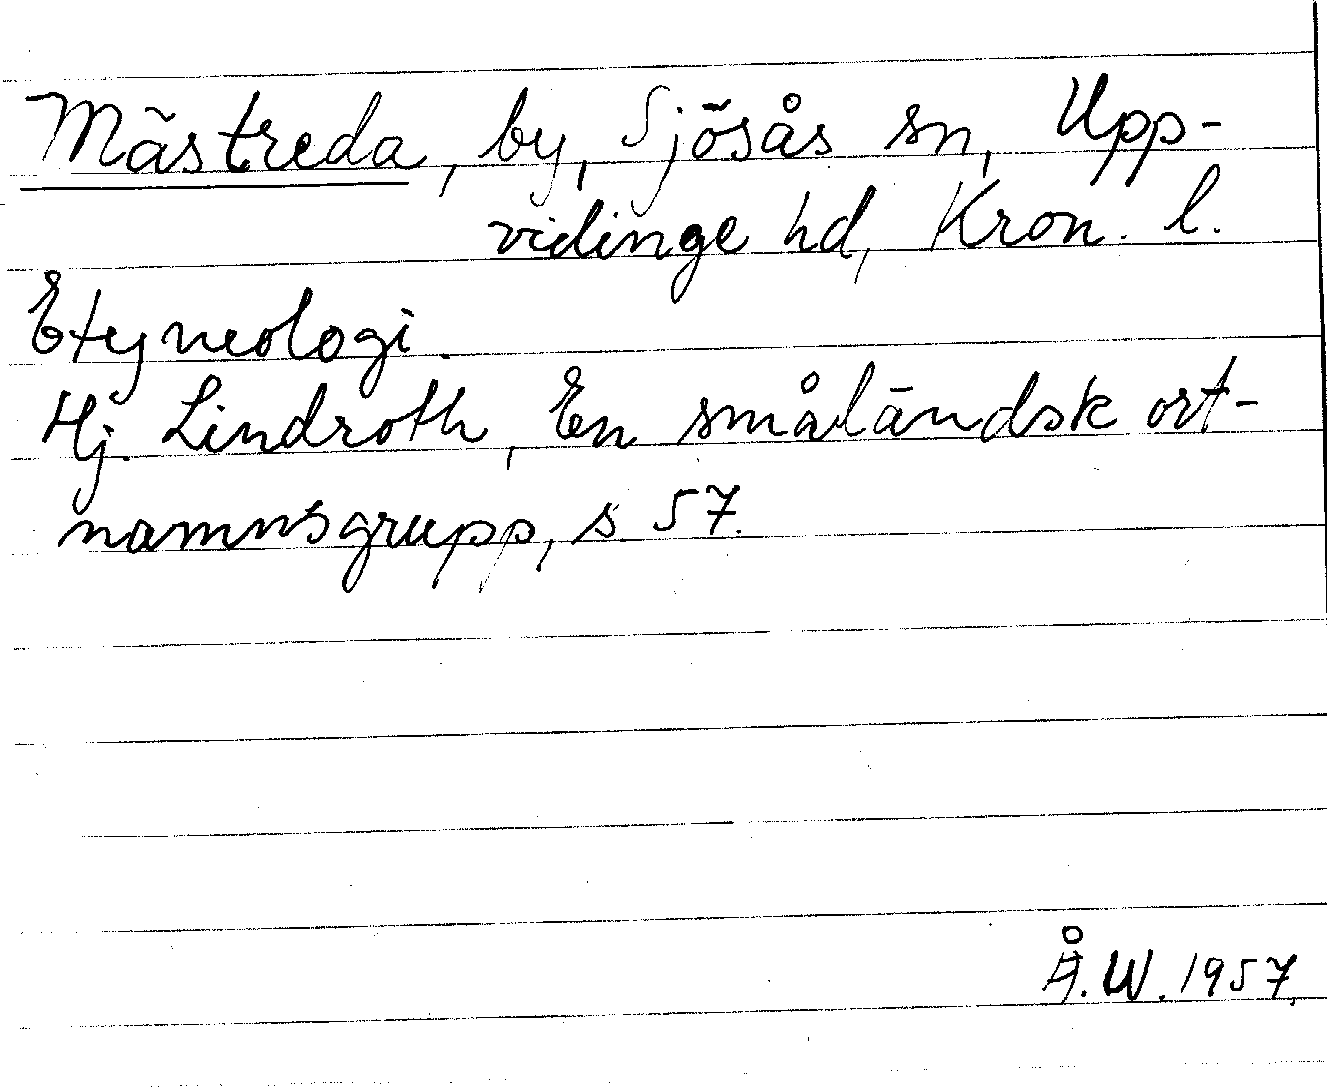 Mästreda, by, Sjösås sn, Upp-
vidinge hd, Kron. l.
Etymologi.
Hj. Lindroth, En småländsk ort-
namnsgrupp, s 57.
Å.W. 1957.